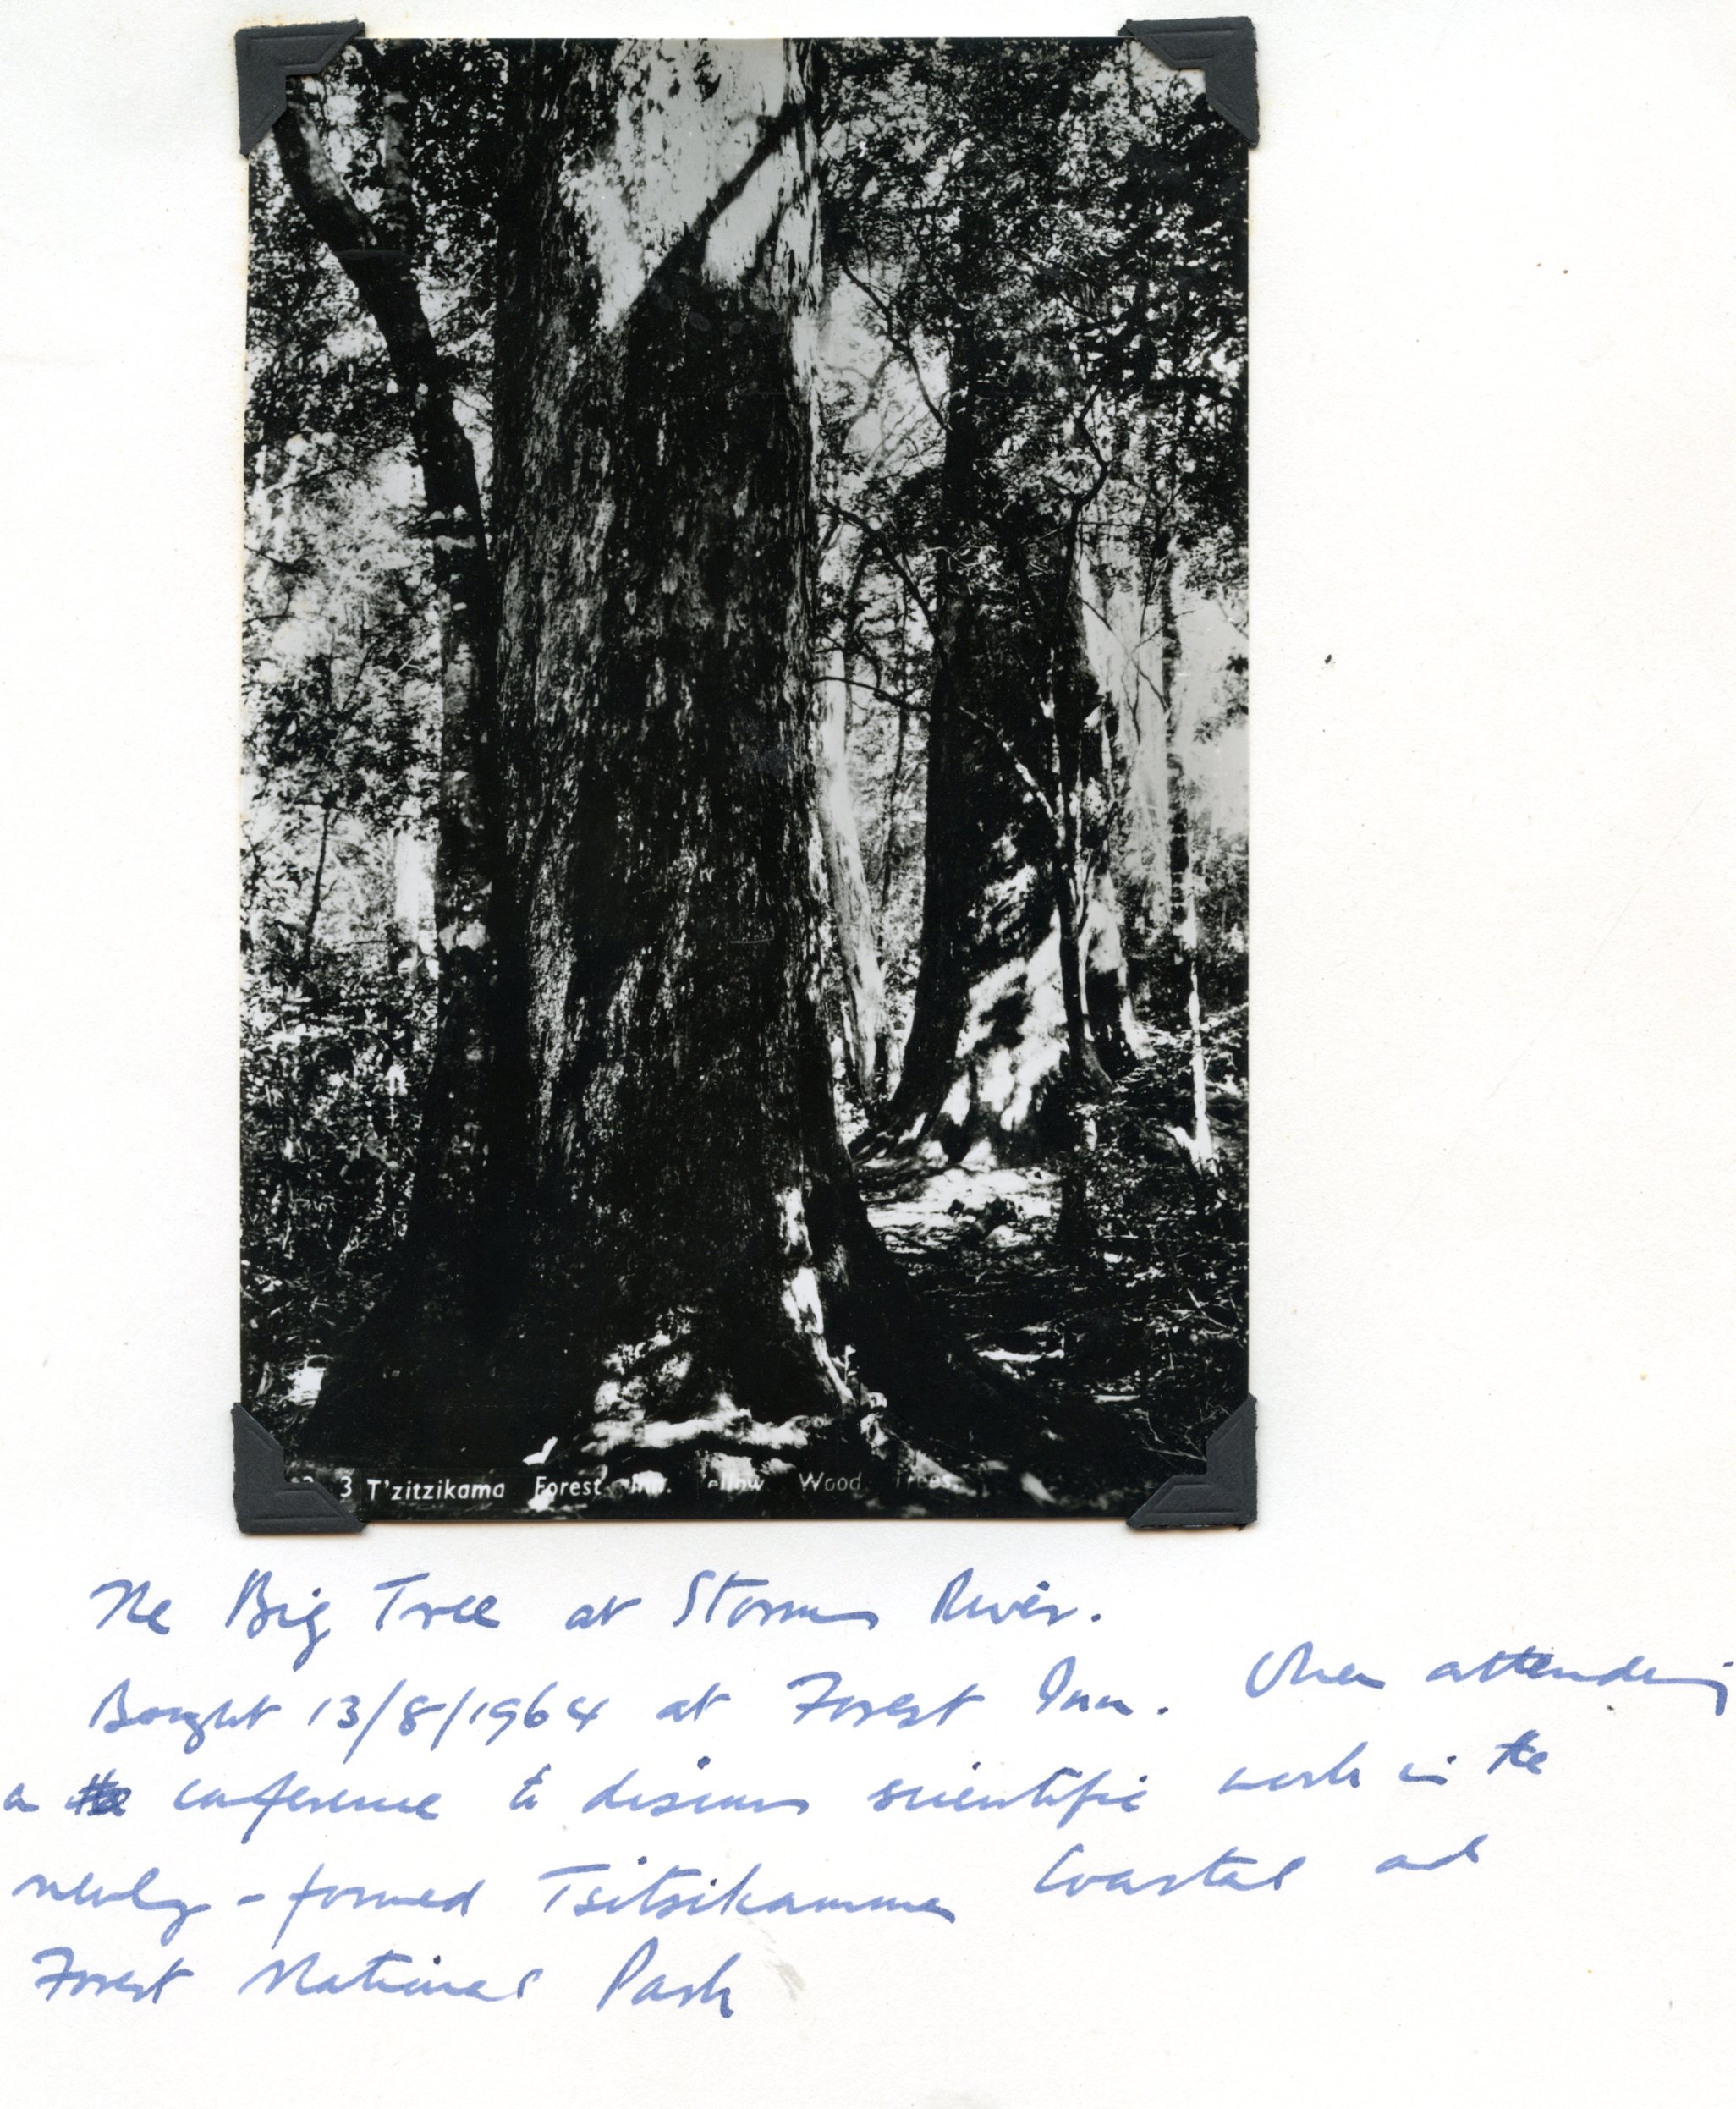 3 T'zitzikama Forest Inn. ellow Wood Trees.
The Big Tree at Storms River.
Bought 13/8/1964 at Forest Inn. When attending
a conference to discuss scientific work in the
newly-formed Tsitsikamma Coastal and
Forest National Park